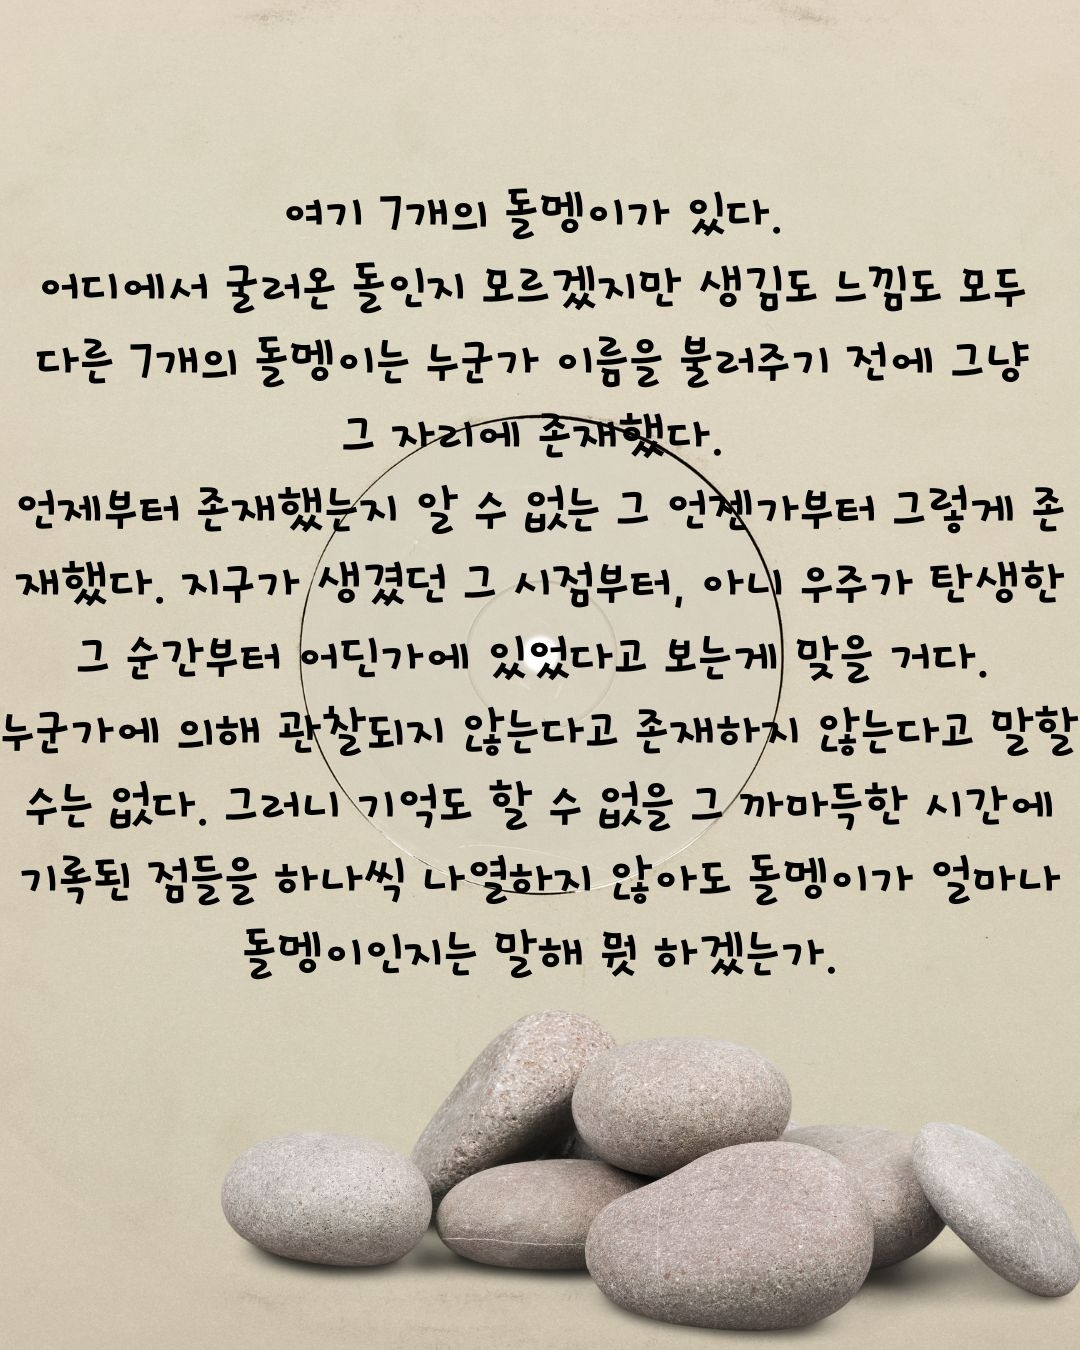 여기 7개의 돌멩이가 있다.
어디에서 굴러온 돌인지 모르겠지만 생김도 느낌도 모두
다른 7개의 돌멩이는 누군가 이름을 불러주기 전에 그냥
그 자리에 존재했다.
언제부터 존재했는지 알 수 없는 그 언젠가부터 그렇게 존
재했다. 지구가 생겼던 그 시점부터, 아니 우주가 탄생한
그 순간부터 어딘가에 있었다고 보는게 맞을 거다.
누군가에 의해 관찰되지 않는다고 존재하지 않는다고 말할
수는 없다. 그러니 기억도 할 수 없을 그 까마득한 시간에
기록된 점들을 하나씩 나열하지 않아도 돌멩이가 얼마나
돌멩이인지는 말해 뭣 하겠는가.